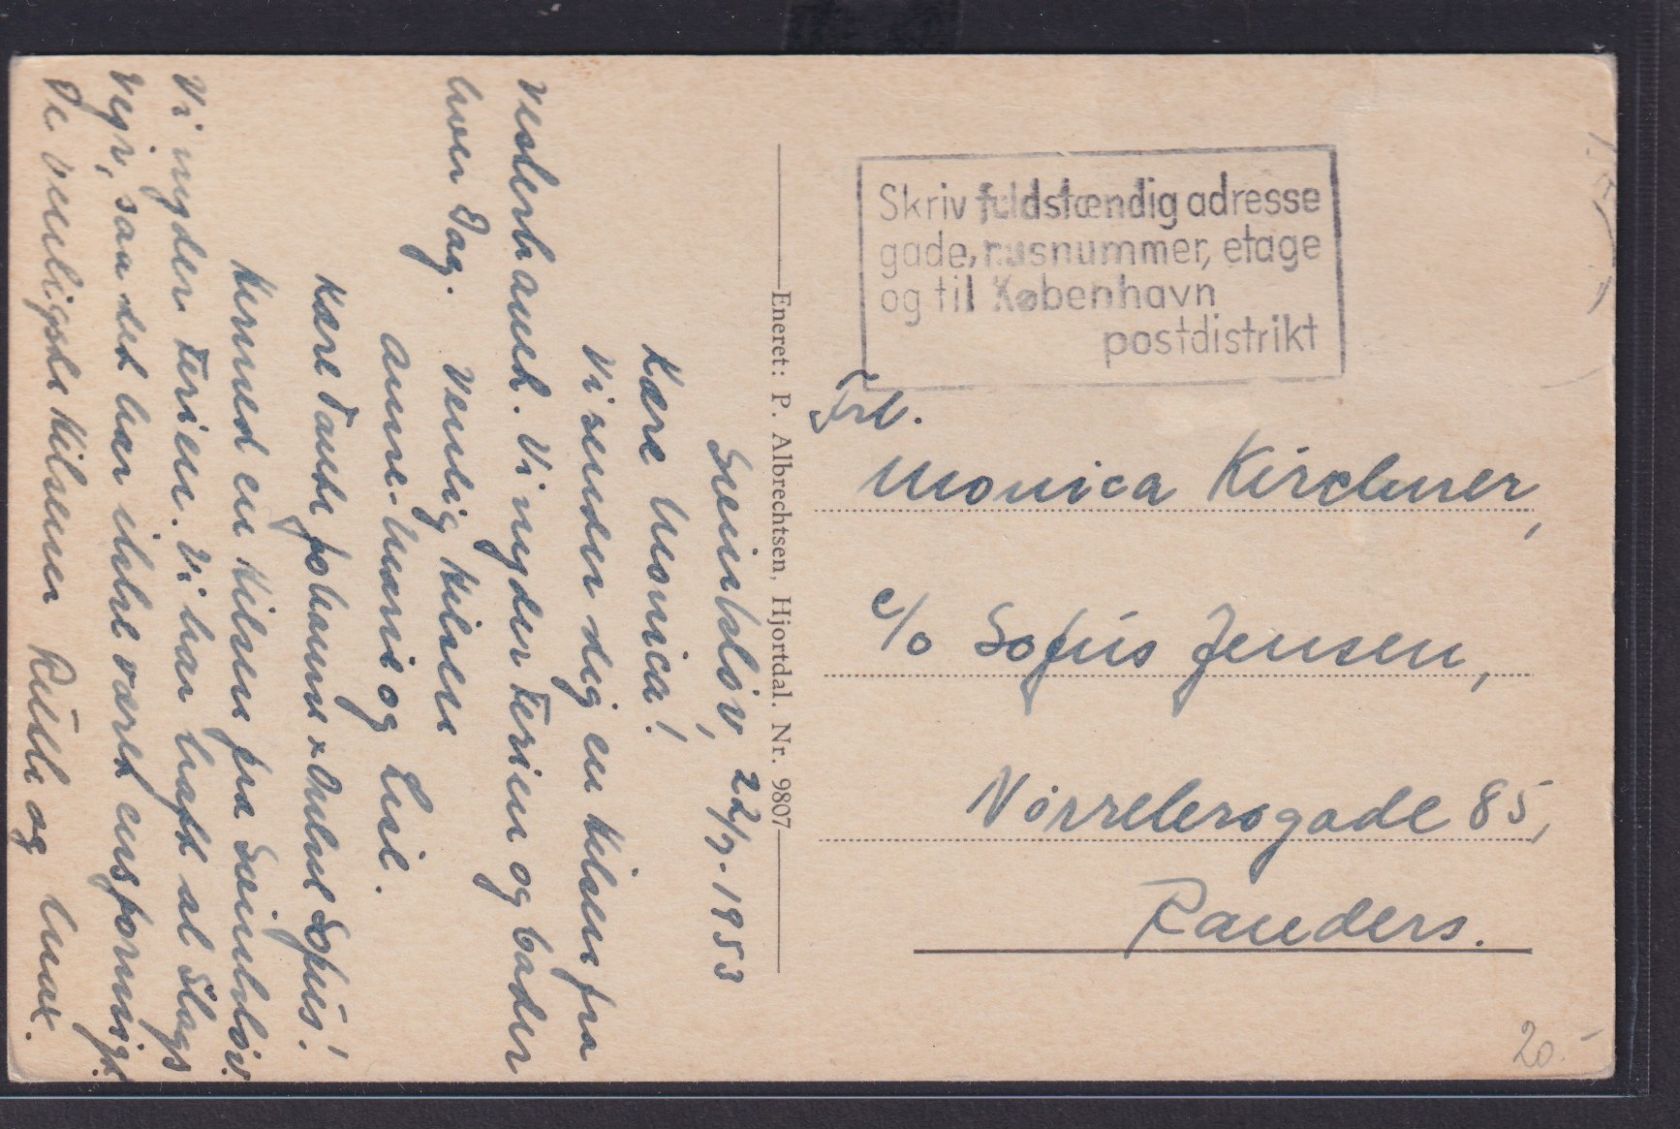 Skriv fuldstændig adresse
gade, husnummer, etage
og til København
postdistrikt
Frk.
Monica Kirchner,
c/o Sofus Jensen,
Nørrebrogade 85,
Randers.
Eneret: P. Albrechtsen, Hjortdal. Nr. 9807
22/7. 1953
Kære Monica!
Vi sender dig en Hilsen fra
Vesterhavet. Vi nyder Ferien og bader
hver Dag. Venlig Hilsen
Anne-Marie og
Kære Tante Johanne & Onkel Sofus!
Hermed en Hilsen fra
Vi nyder Ferien. Vi har haft al Slags
Vejr, saa det har ikke været ensformigt.
De venligste Hilsener og Max.
20.-